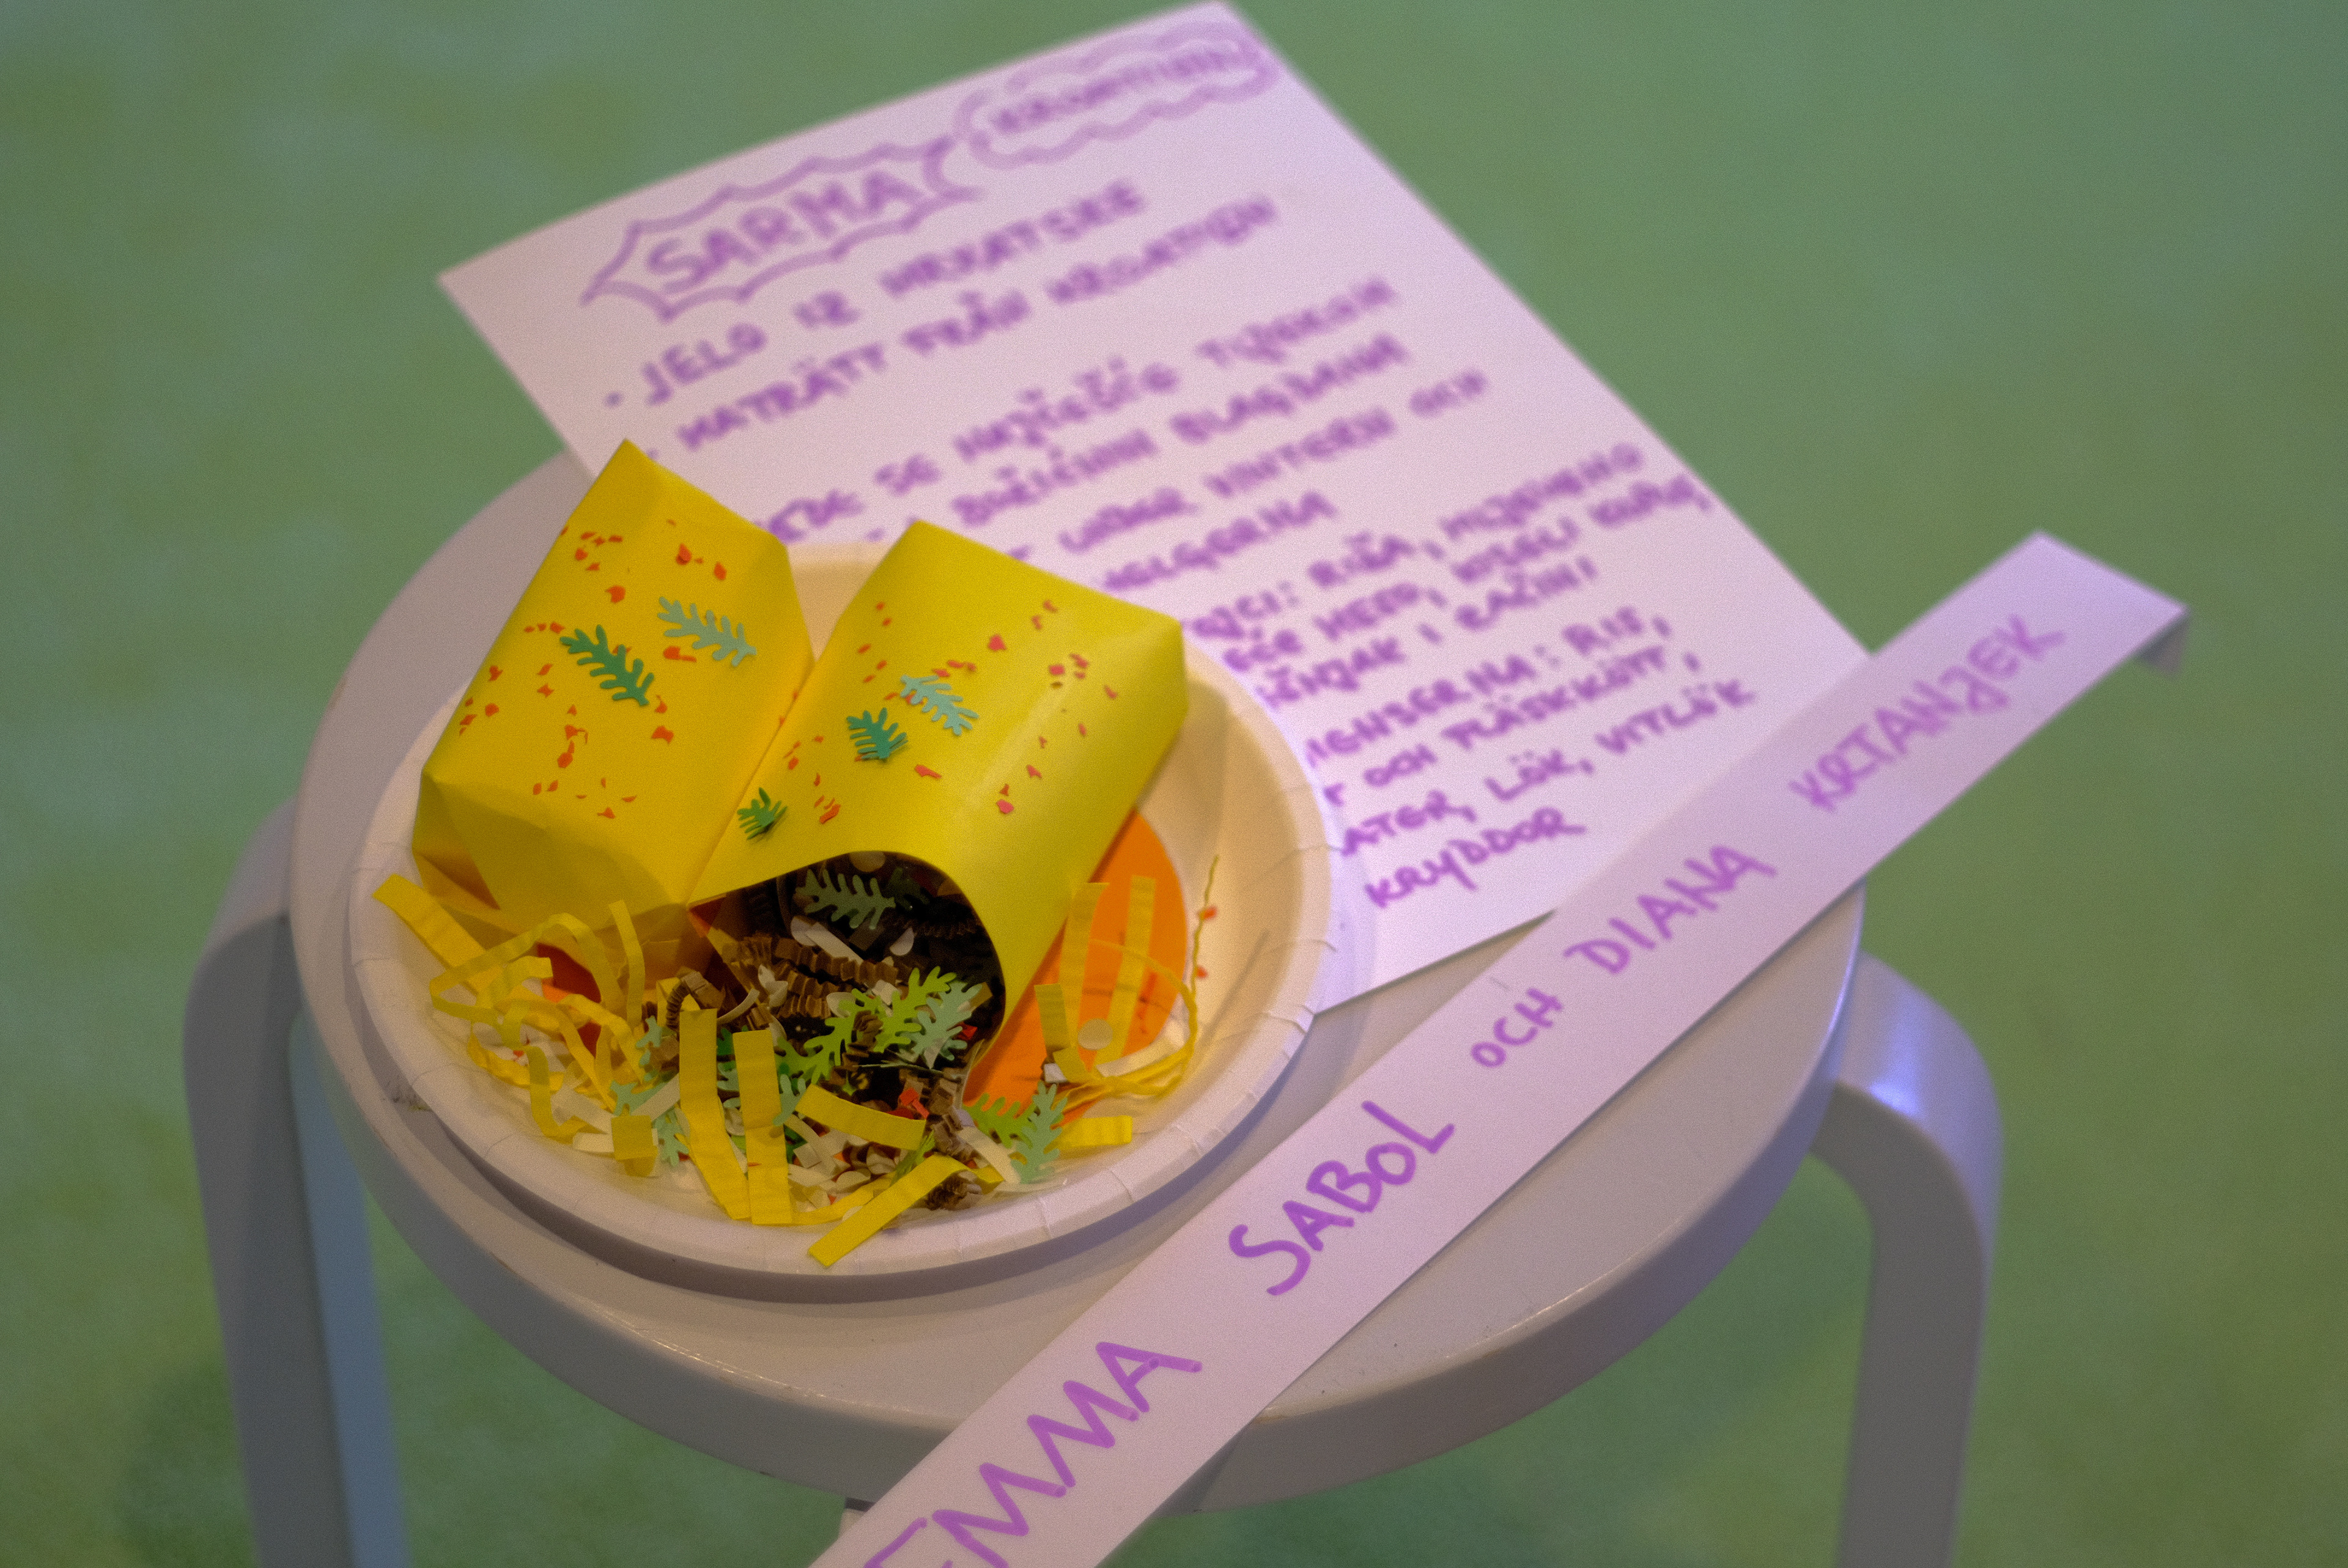 SARMA
• JELO IZ HRVATSKE
• MATRÄTT FRÅN KROATIEN
JEDE SE NAJČEŠĆE TIJEKOM
BOŽIĆNIH BLAGDANA
UNDER VINTERN OCH
HELGERNA
RIŽA, MLJEVENO
MESO, KISELI KUPUS,
ČEŠNJAK I ZAČINI
IENSERNA: RIS,
OCH FLÄSKKÖTT,
LÖK, VITLÖK
KRYDDOR
EMMA SABOL OCH DIANA KRTANJEK